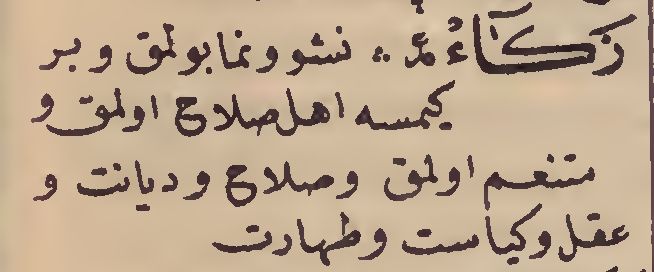 زَكَآءٌ نشو ونما بولمق و بر
كیمسه اهل صلاح اولمق و
متنعم اولمق وصلاح و دیانت و
عقل و كیاست و طهارت